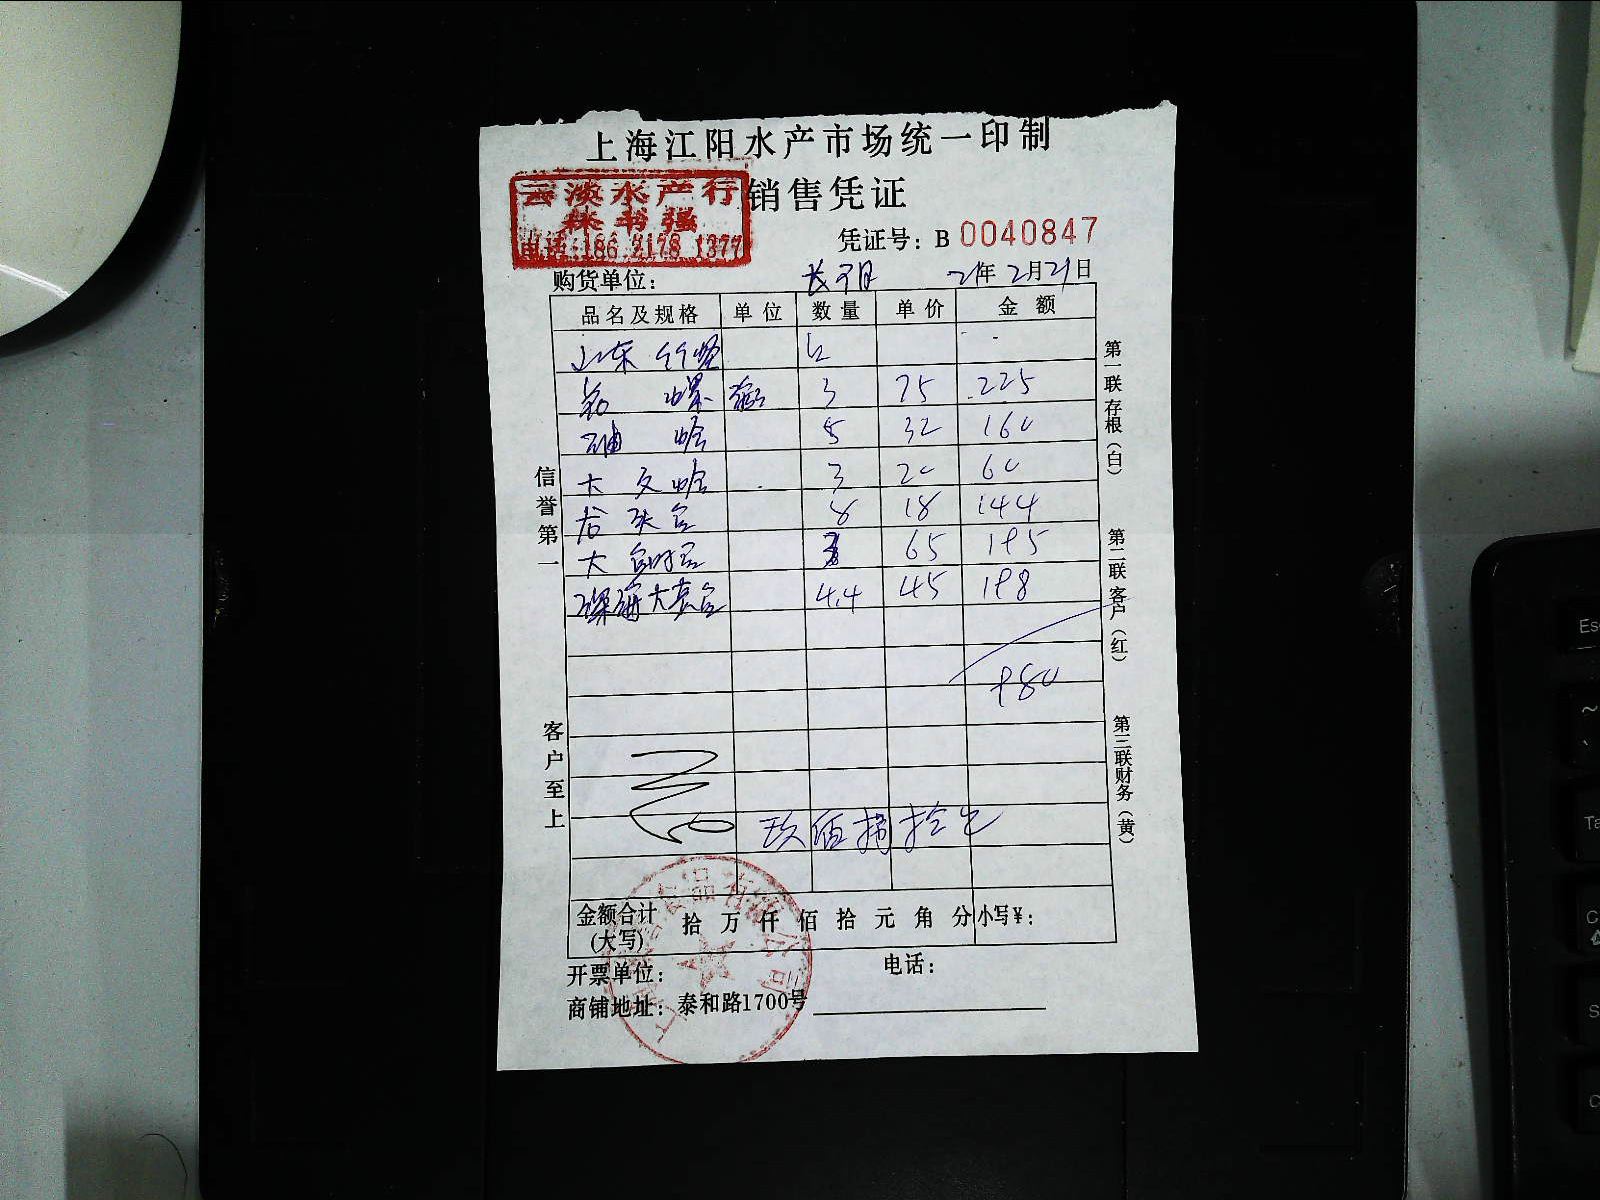 上海江阳水产市场统一印制
云淡水产行
林书强
电话:186 2178 1377
销售凭证
凭证号: B 0040847
购货单位: 21年2月21日
品名及规格 单位 数量 单价 金额
山东竹蛏
螺 3 75 225
油蛤 5 32 160
大文蛤 3 20 60
8 18 144
大 65 195
深海大 4.4 45 198
980
玖佰捌拾元
金额合计(大写) 拾 万 仟 佰 拾 元 角 分 小写¥:
开票单位: 电话:
商铺地址: 泰和路1700号
信誉第一
客户至上
第一联存根(白)
第二联客户(红)
第三联财务(黄)